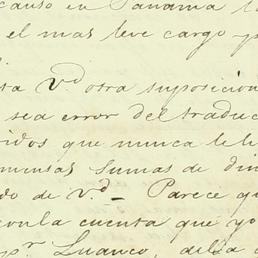 causó en Panamá l
el mas leve cargo p
ta Vd otra suposicion
sea error del traduc
idos que nunca le h
mensas sumas de din
do de Vd.— Parece qu
con la cuenta que yo
pr. Luanco, dela